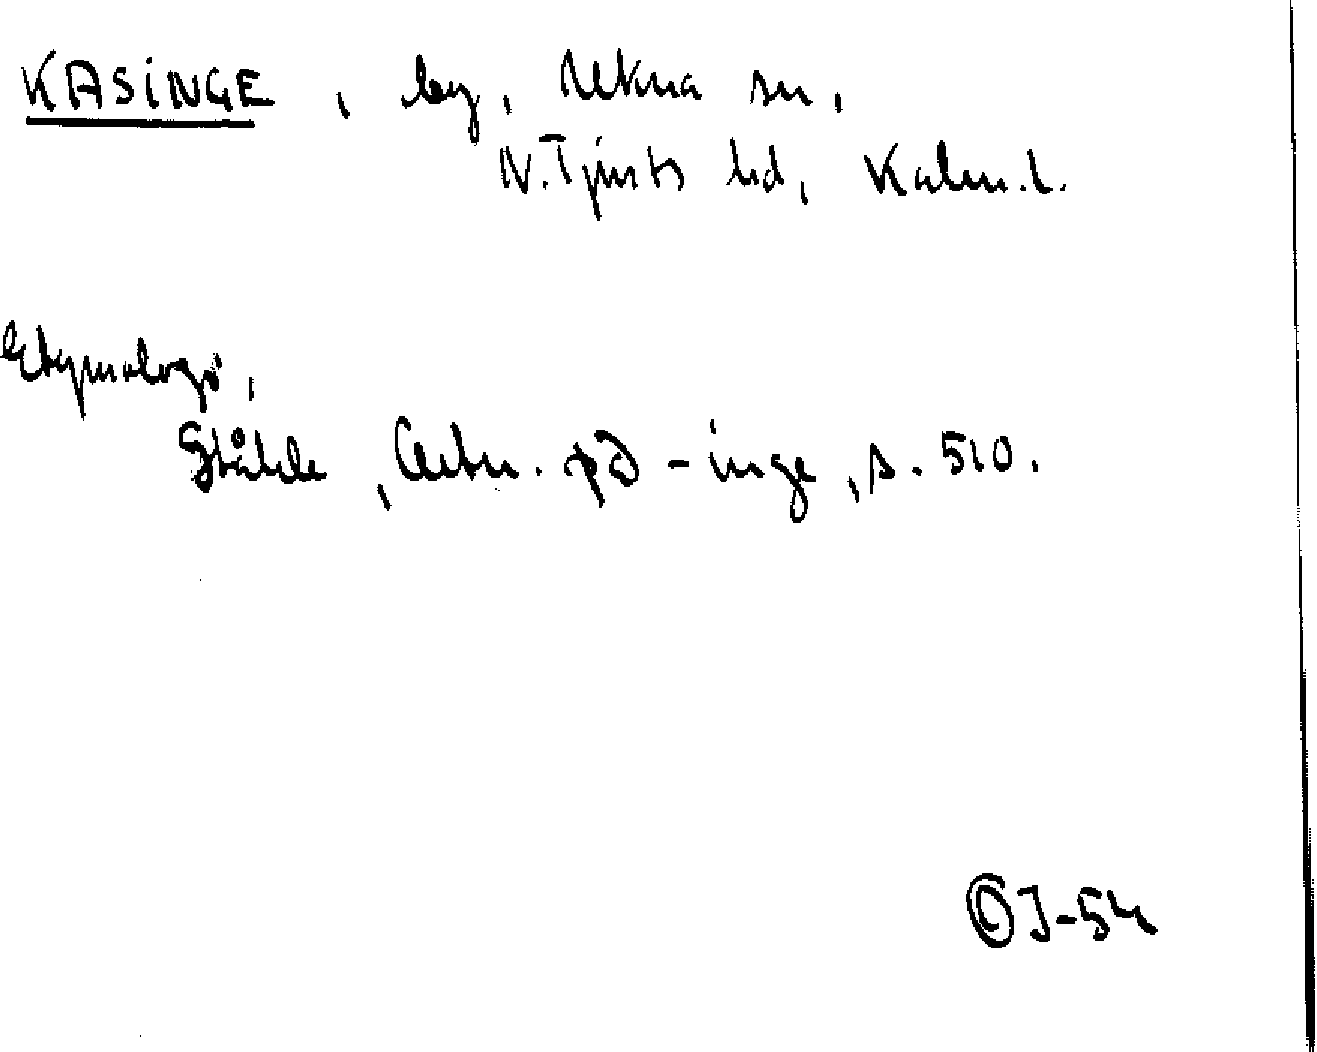 KASINGE, by, Ukna sn,
N. Tjusts hd, Kalm. l.
Etymologi,
Ståhle, Ortn. på -inge, s. 510.
J-54